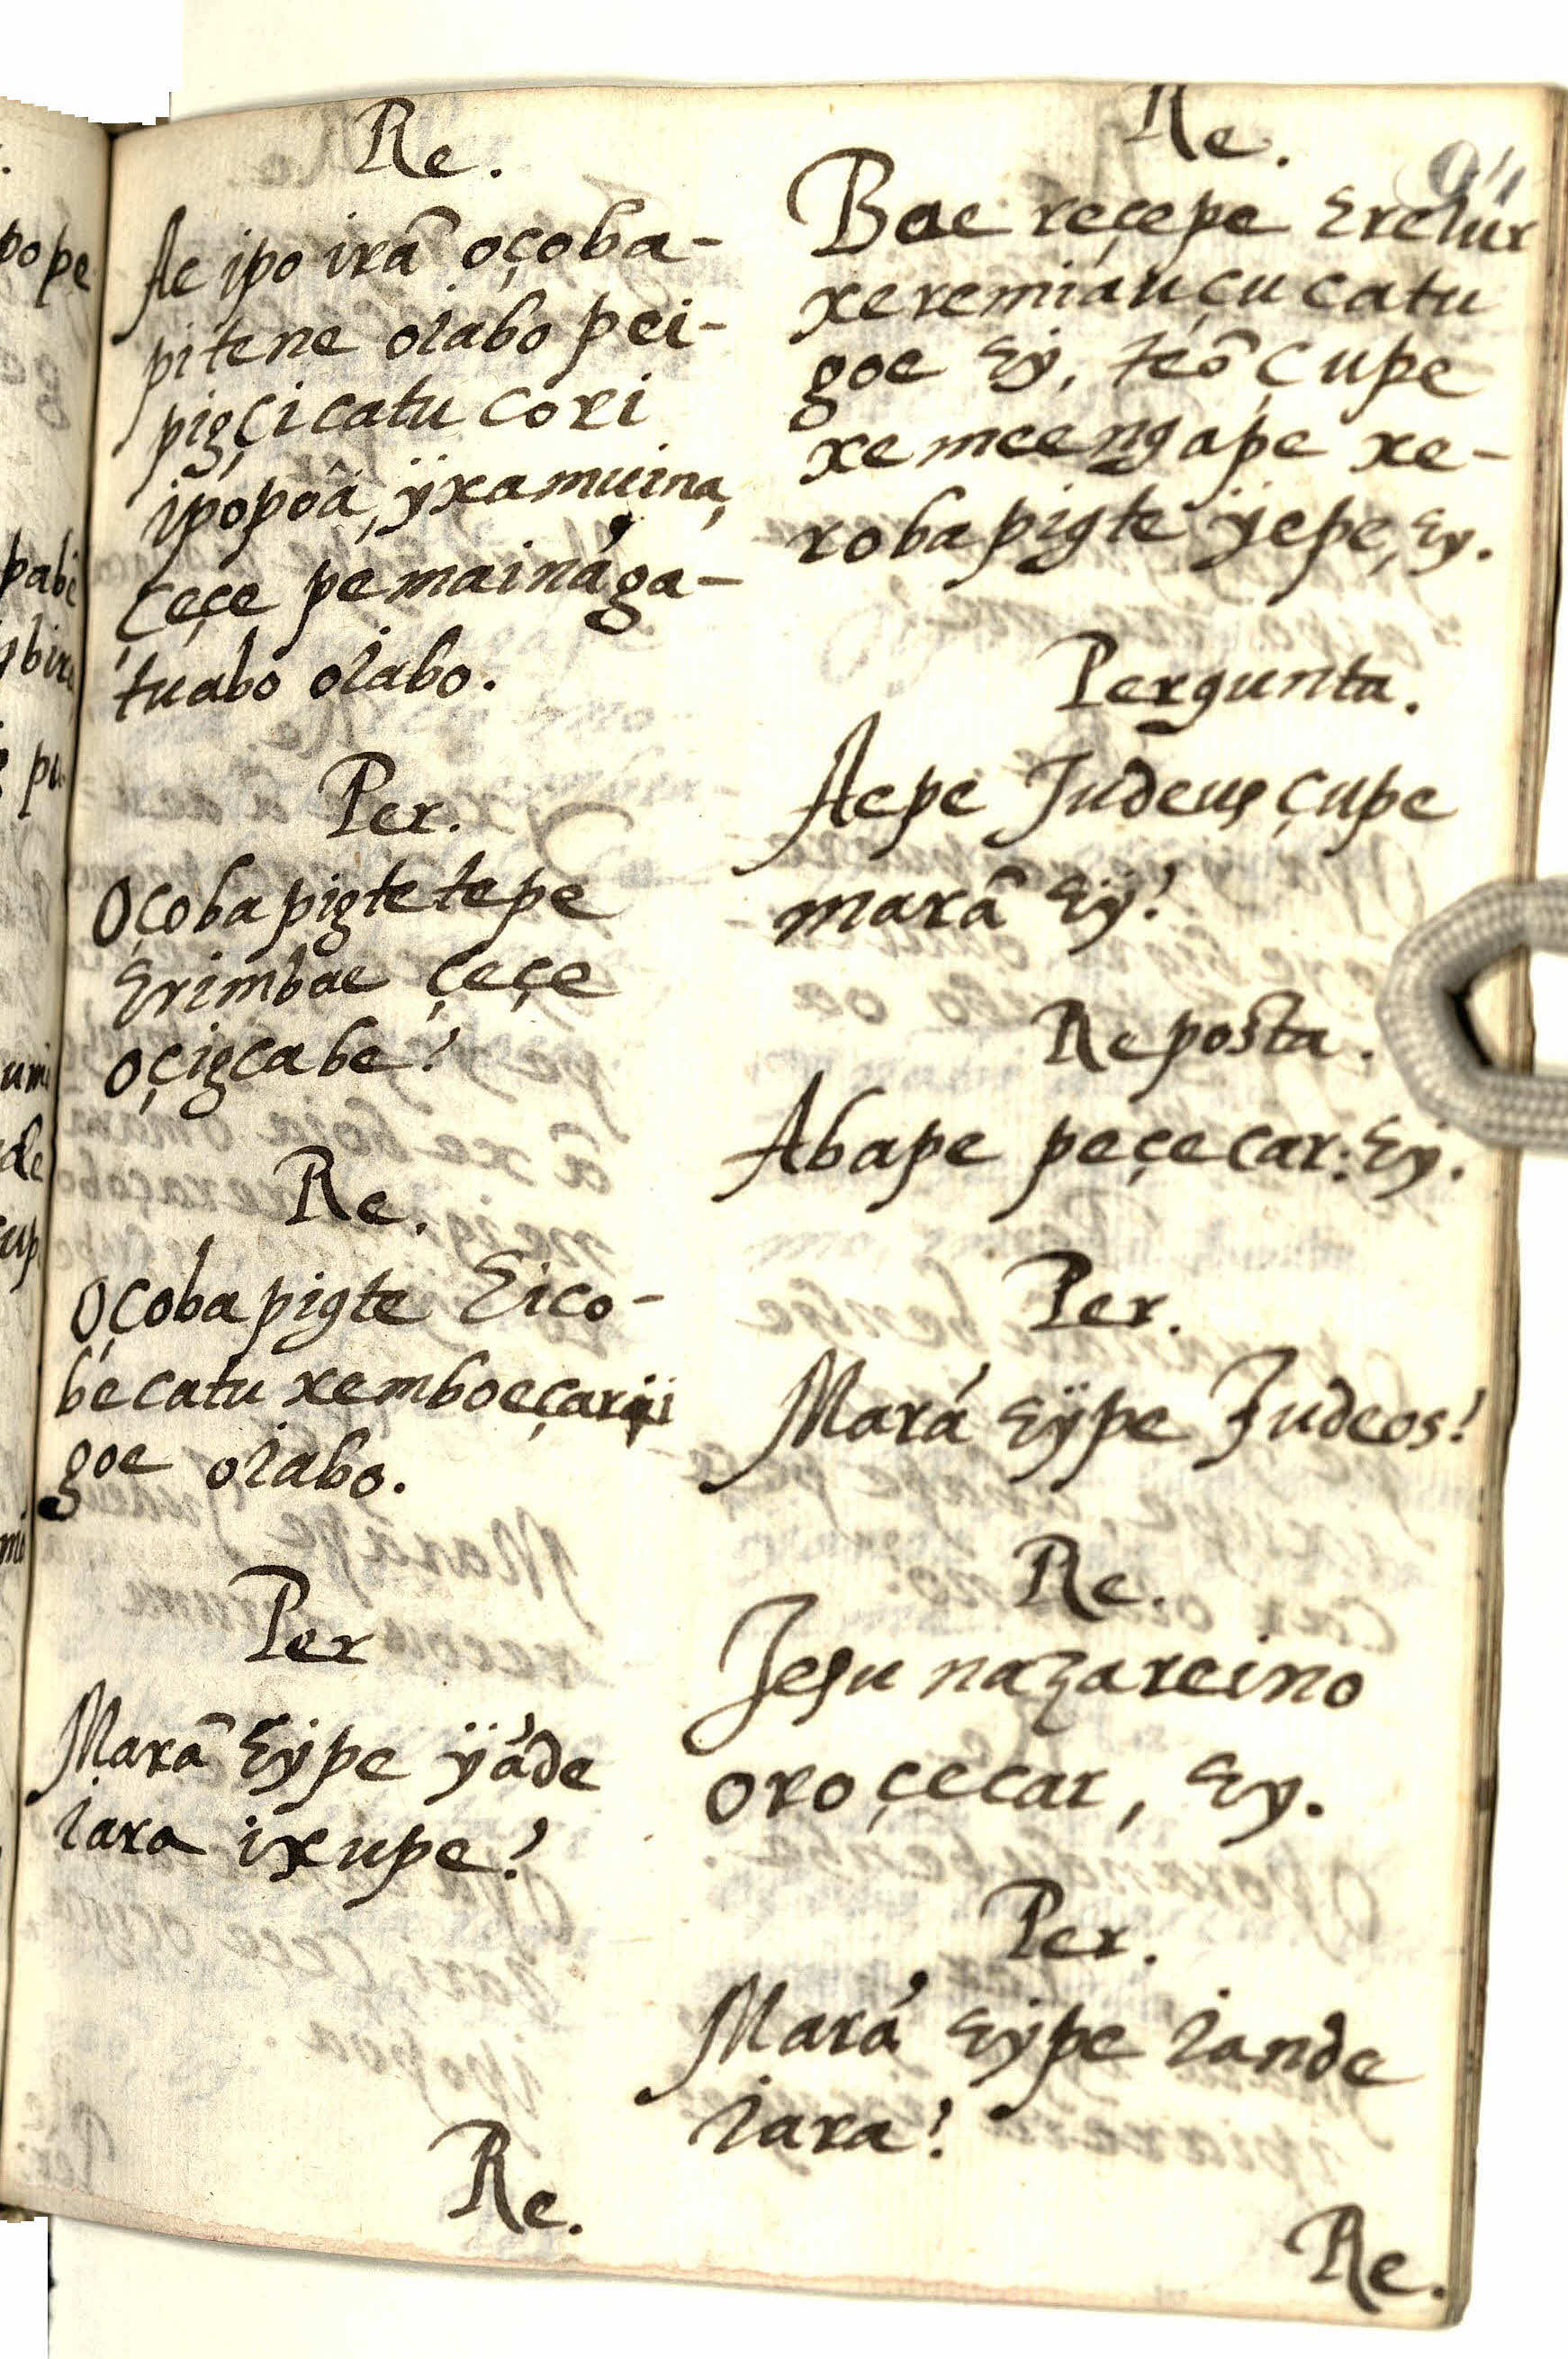 Re.
Ae ipo irã oçoba-
pitene olabo pei-
pigçi catu cori
ipopoâ, ÿxamuina,
çeçe pemainága-
tuabo olabo.
Per.
Oçobapigtetepe
Erimbae çeçe
oçigcabe?
Re.
Oçobapigte Eico-
becatu xemboeçar
goe olabo.
Per
Marã Eÿpe ÿáde
lara ixupe?
Re.
Re.
Bae reçepe Erelur
xeremiauçucatu
goe Eÿ, teõ çupe
xemeengape xe-
robapigte ÿepe, Ey.
Pergunta.
Aepe Judeus çupe
marã Eÿ?
Reposta.
Abape peçecar: Eÿ.
Per.
Mará Eÿpe Judeos?
Re.
Jesu nazareino
oroçecar, Ey.
Per.
Mará Eÿpe lande
lara?
Re.